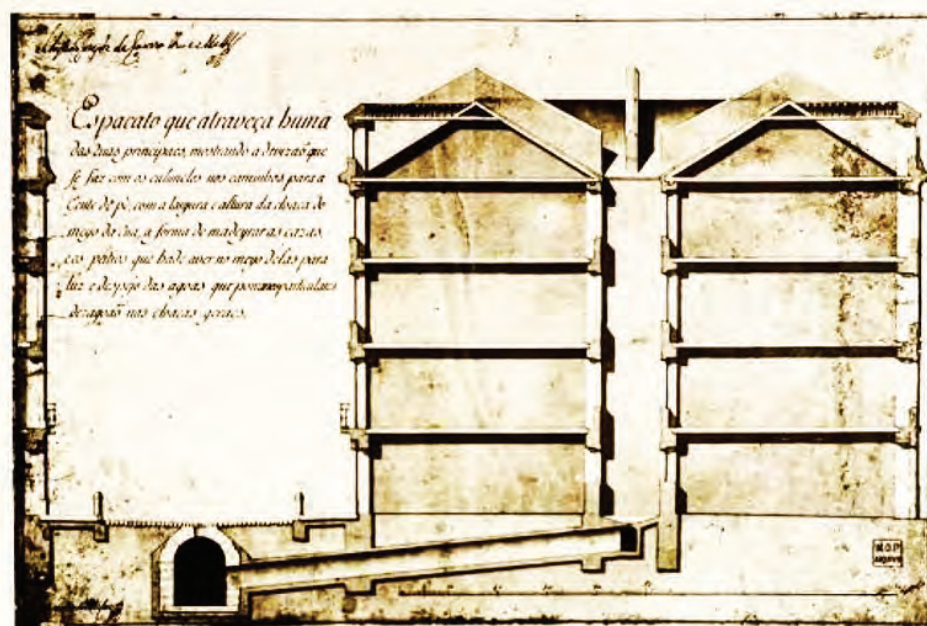 Espacato que atraveça huma
das ruas principaes, mostrando a divizaõ que
se faz com os culuneles nos caminhos para a
Gente de pé, com a largura e altura da cloaca do
meyo da rua, a forma de madeyrar as cazas,
e os páteos que hade aver no meyo delas para
luz e despejo das agoas que por particulares
dezagoaõ nas cloacas geraes.
M.O.P